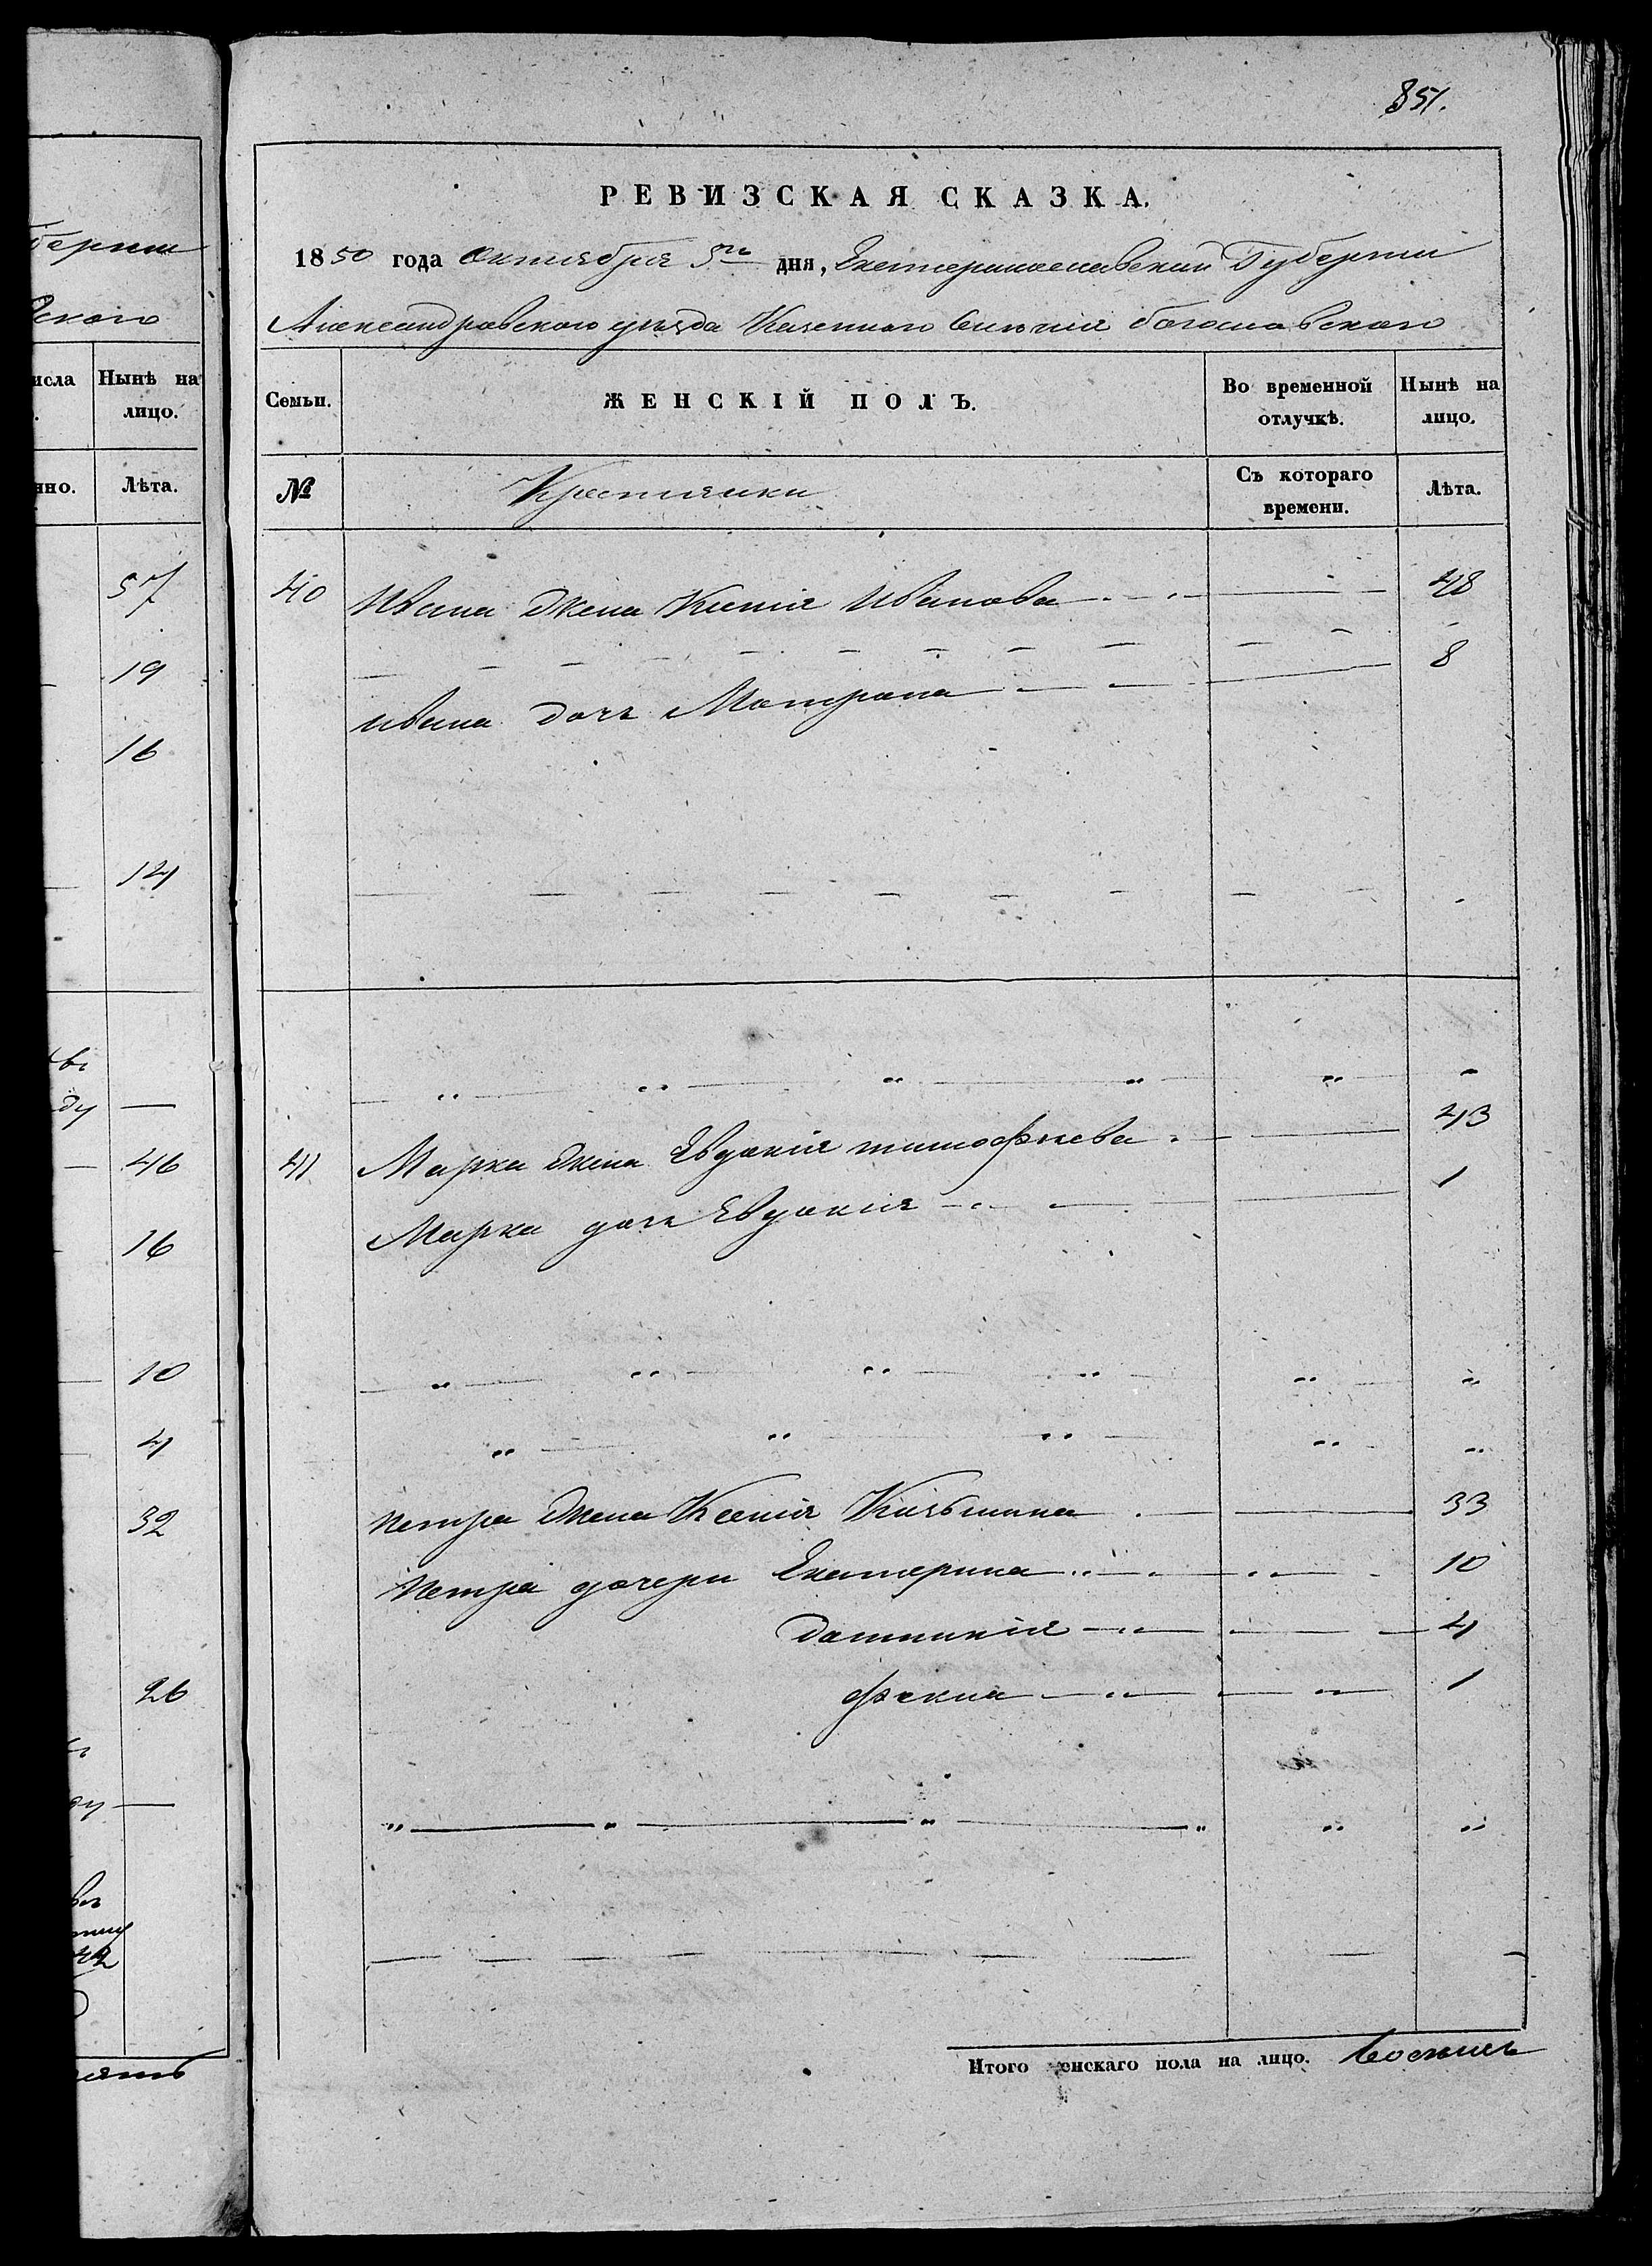 851.
РЕВИЗСКАЯ СКАЗКА.
1850 года Октября 5го дня, Екатеринославской Губернии
Александровского уѣзда Казенного Селѣния богословского
Семьи.
ЖЕНСКІЙ ПОЛЪ.
Во временной отлучкѣ.
Нынѣ на лицо.
№
Крестьянки
Съ котораго времени.
Лѣта.
40 Ивана Жена Ксения Иванова 48
Ивана дочь Матрона 8
41 Марка жена Евдокия тимофѣева 43
Марка дочь Евдокия 1
петра Жена Ксения Кузьмина 33
петра дочери Екатерина 10
домникия 4
фекла 1
Итого женскаго пола на лицо. восемь
берния
ского
исла
Нынѣ на лицо.
нно.
Лѣта.
57
19
16
14
ду
46
16
10
4
32
26